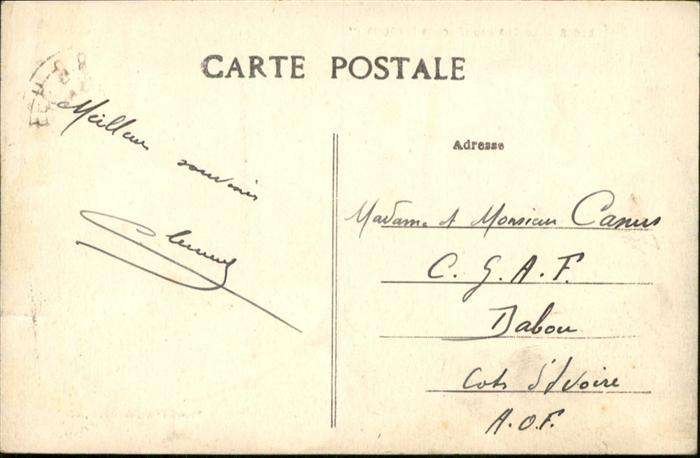 CARTE POSTALE
Meilleur souvenir
Adresse
Madame et Monsieur Canus
C. G. A. F.
Dabou
Cote d'Ivoire
A.O.F.